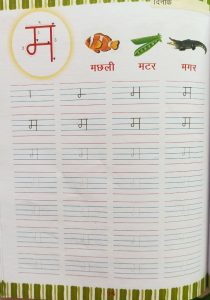 दिनांक
म
मछली मटर मगर
म म
म म म म
म म म म
म म म म